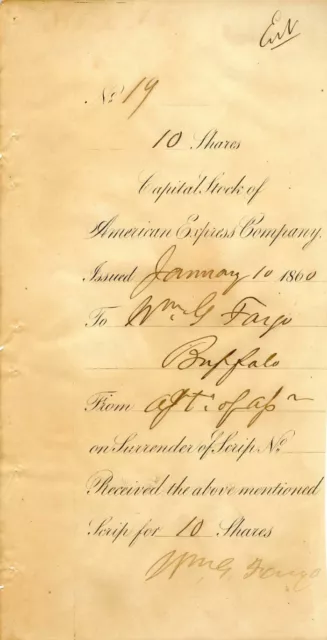 No. 19
10 Shares
Capital Stock of
American Express Company.
Issued January 10 1860
To Wm. G Fargo
Buffalo
From
on Surrender of Scrip No.
Received the above mentioned
Scrip for 10 Shares
Wm G Fargo